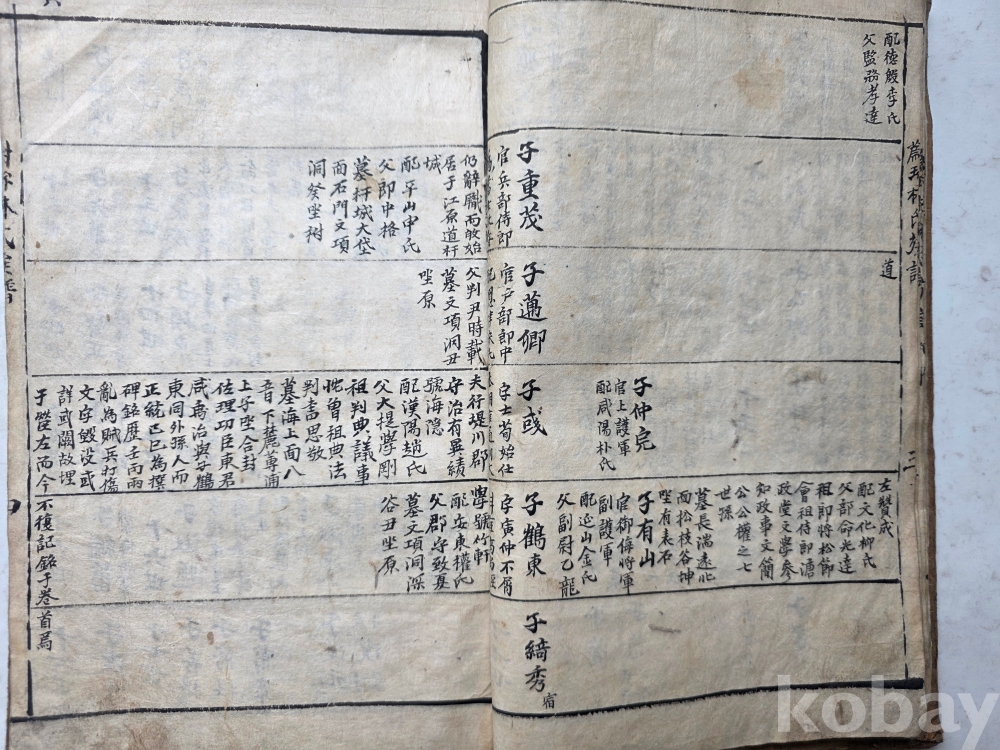 配德殷李氏
父監務孝達
道
三
子重茂
官兵部侍郎
子蓪卿
官戶部郎中
子仲完
官上護軍
配咸陽朴氏
子彧
字士荀始仕
左贊成
配文化柳氏
父部命光達
祖即將松節
會祖侍郎湛
政堂文學參
知政事文簡
公公權之七
世孫
墓長湍遠北
面松枝谷坤
坐有表石
子有山
官御侮將軍
副護軍
配延山金氏
父副尉乙龍
子鶴東
字寅仲不屑
子綺秀
宿
仍辭職而敀始
居于江原道杆
城
配平山申氏
父郎中格
墓杆城大垈
面石門文項
洞癸坐树
父判丑時載
墓文項洞丑
坐原
夫行堤川郡
守治有異績
號海隱
配漢陽趙氏
父大提學剛
祖判典議事
性曽祖典法
判書思敬
墓海上面八
音下麓尊浦
上子坐合封
佐理功臣東君
咸喬治與子鶴
東同外孫人而
正統己巳為撰
碑銘歷壬丙兩
亂為賊兵打傷
文字毀沒或
詳或闕故埋
于塋左而今
不復記銘于卷首焉
學號竹軒
配安東權氏
父郡守致真
墓文項洞深
谷丑坐原
四
kobay